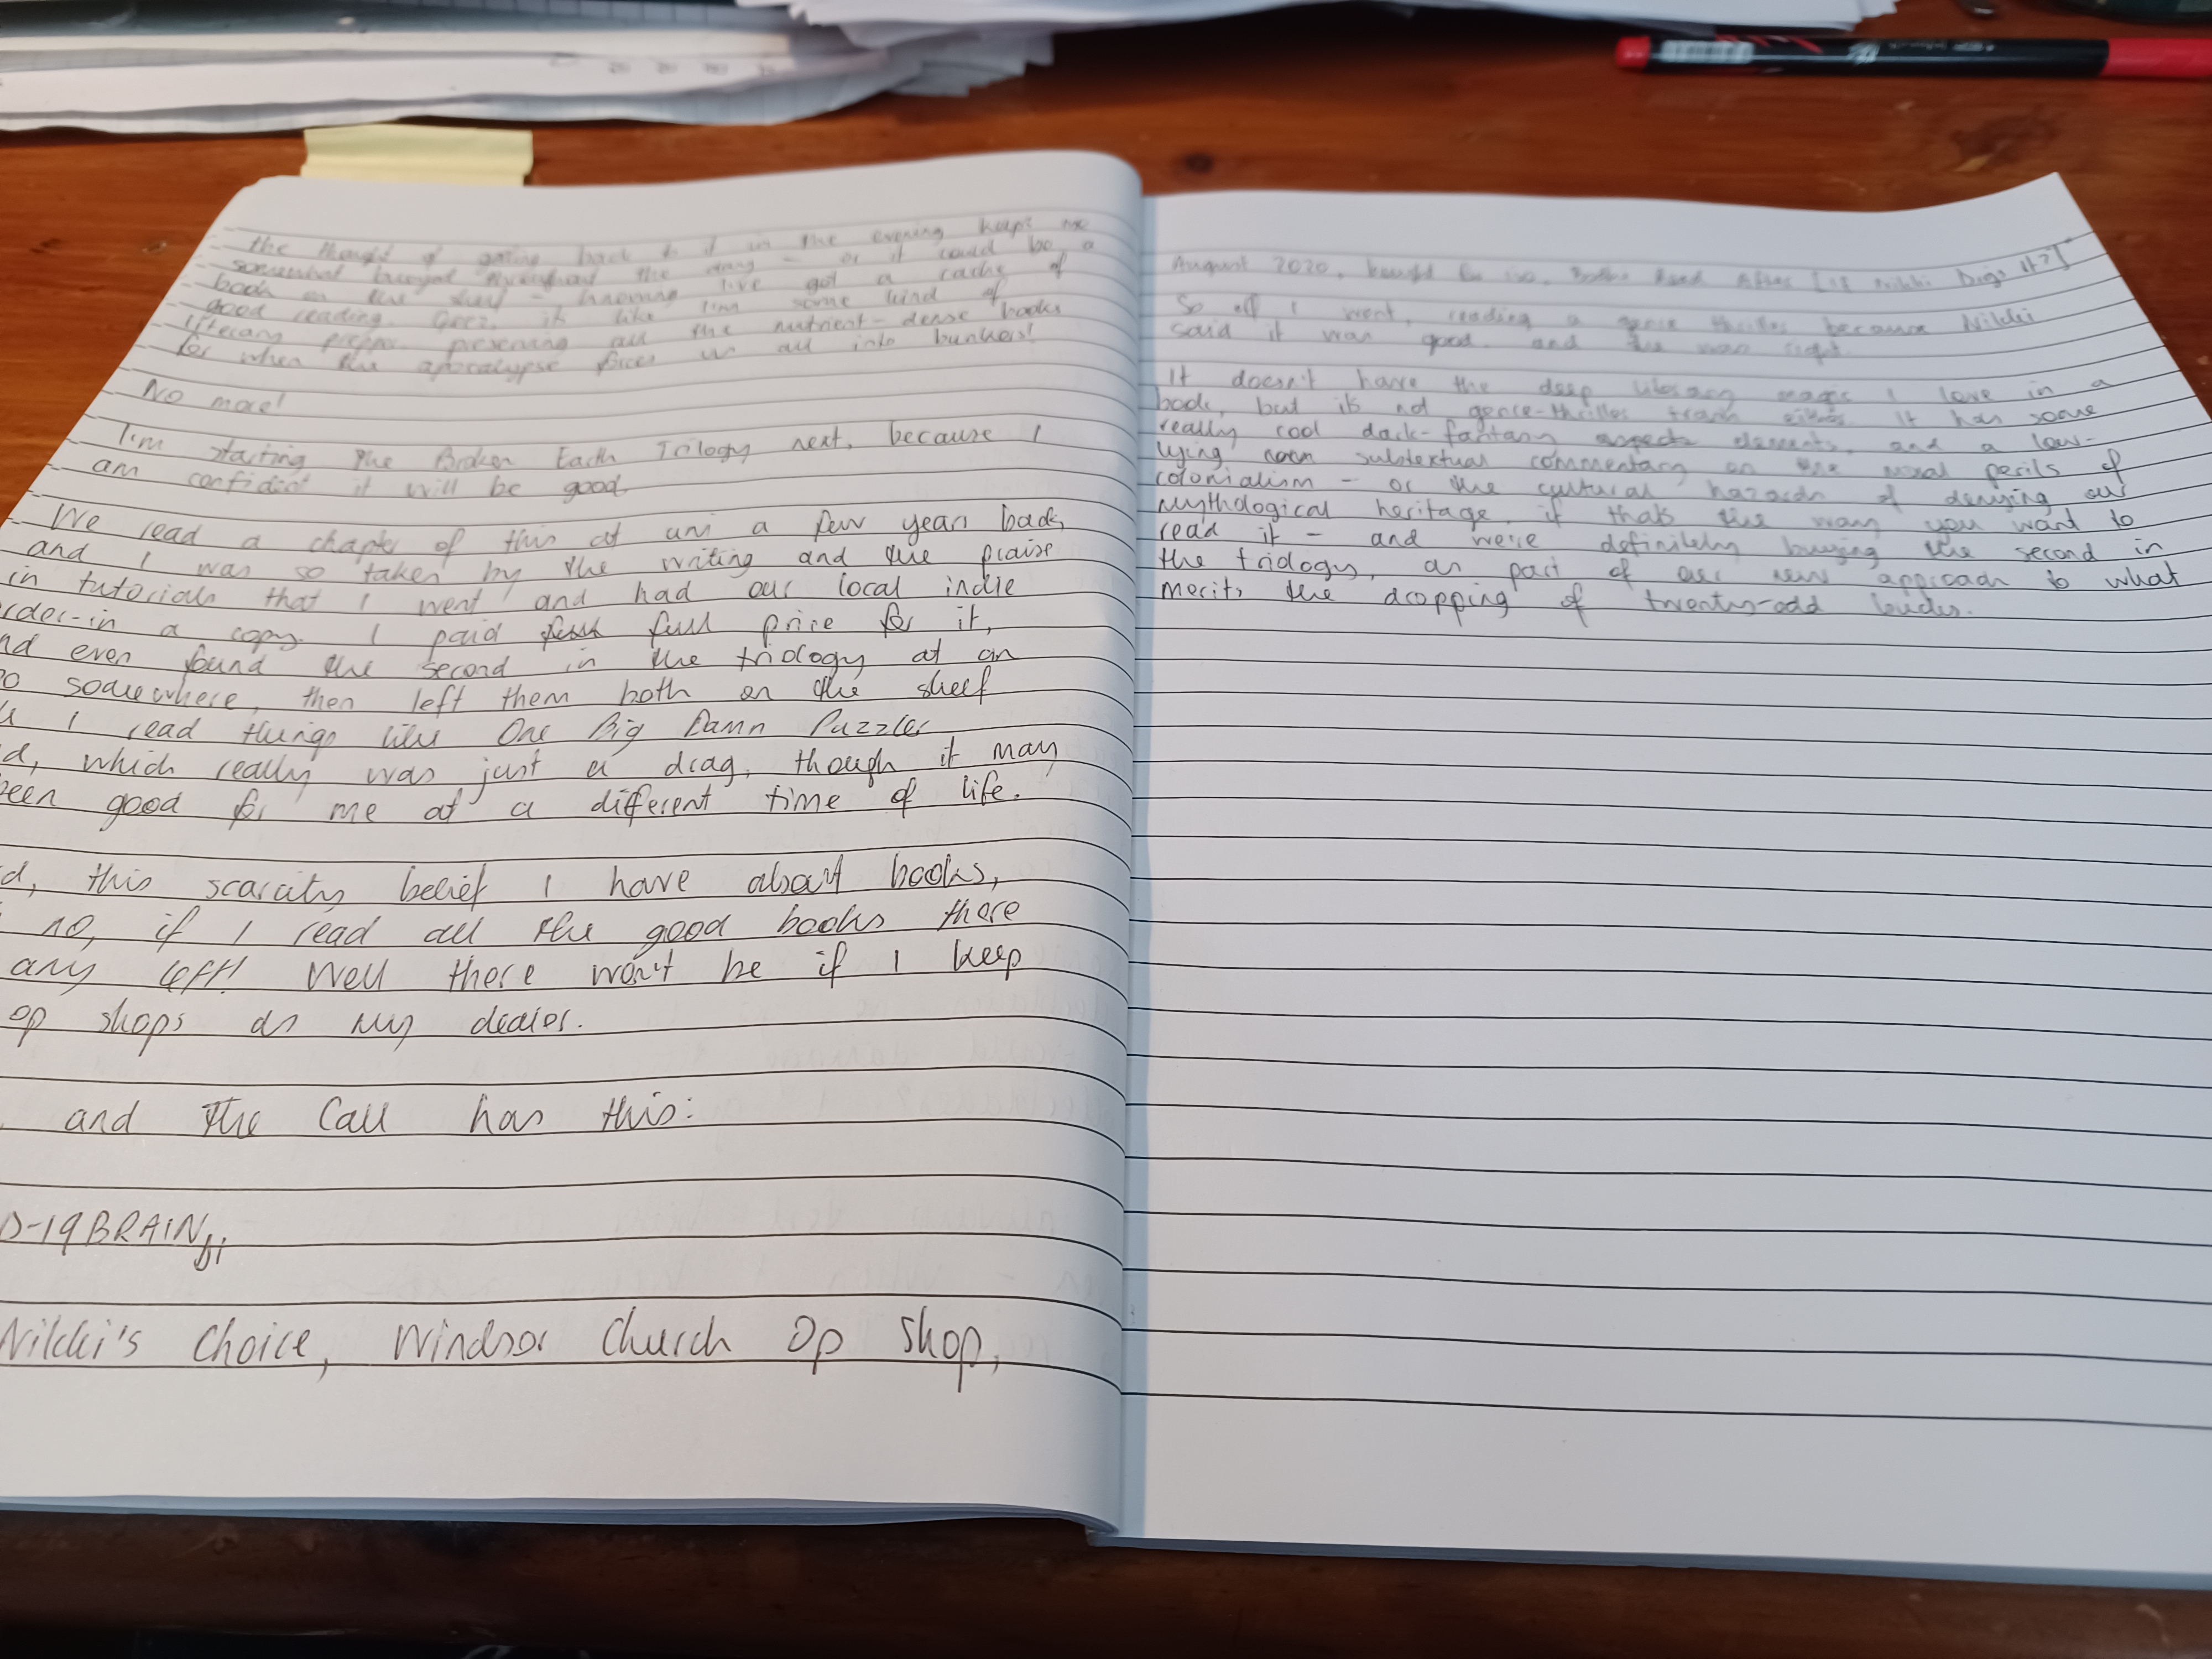 the thought of going back to it in the evening keeps me
somewhat buoyed throughout the day - or it could be a
book on the shelf - knowing I've got a cache of
good reading. Geez, it's like I'm some kind of
literary prepper preserving all the nutrient-dense books
for when the apocalypse forces us all into bunkers!
No more!
I'm starting The Broken Earth Trilogy next, because I
am confident it will be good.
We read a chapter of this at uni a few years back,
and I was so taken by the writing and the praise
in tutorials that I went and had our local indie
order-in a copy. I paid full price for it,
nd even found the second in the triology at an
o somewhere, then left them both on the shelf
I read things like One Big Damn Puzzler
d, which really was just a drag, though it may
been good for me at a different time of life.
d, this scarcity belief I have about books,
no, if I read all the good books there
any left! Well there won't be if I keep
op shops as my dealer.
and The Call has this:
D-19BRAIN
Nikki's Choice, Windsor Church Op Shop,
August 2020, bought for Read After [if Nikki Digs It?]
So off I went, reading a genre thriller because Nikki
said it was good. and she was right.
It doesn't have the deep literary magic I love in a
book, but it's not genre-thriller trash either. It has some
really cool dark-fantasy aspects elements, and a low-
lying subtextual commentary on the moral perils of
colonialism - or the cultural hazards of denying our
mythological heritage, if that's the way you want to
read it - and we're definitely buying the second in
the triology, as part of our new approach to what
merits the dropping of twenty-odd bucks.